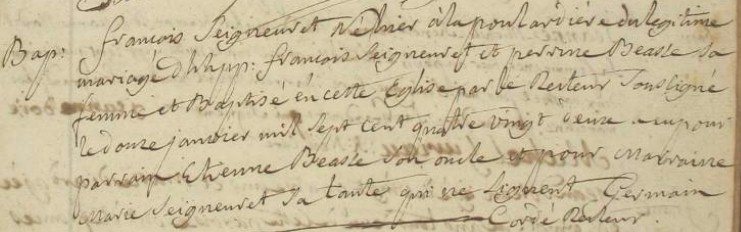 Bap: françois Seigneuret Né hier à la poulardière du legitime
mariage d'h. happ: françois Seigneuret et perrine Beasse Sa
femme et Baptisé en cette Eglise par le Recteur Soussigné
le douze janvier mil Sept cent quatre vingt deux a eu pour
parrain Etienne Beasse Son oncle et pour marraine
Marie Seigneuret Sa tante qui ne Signent Germain
Cordé Recteur.